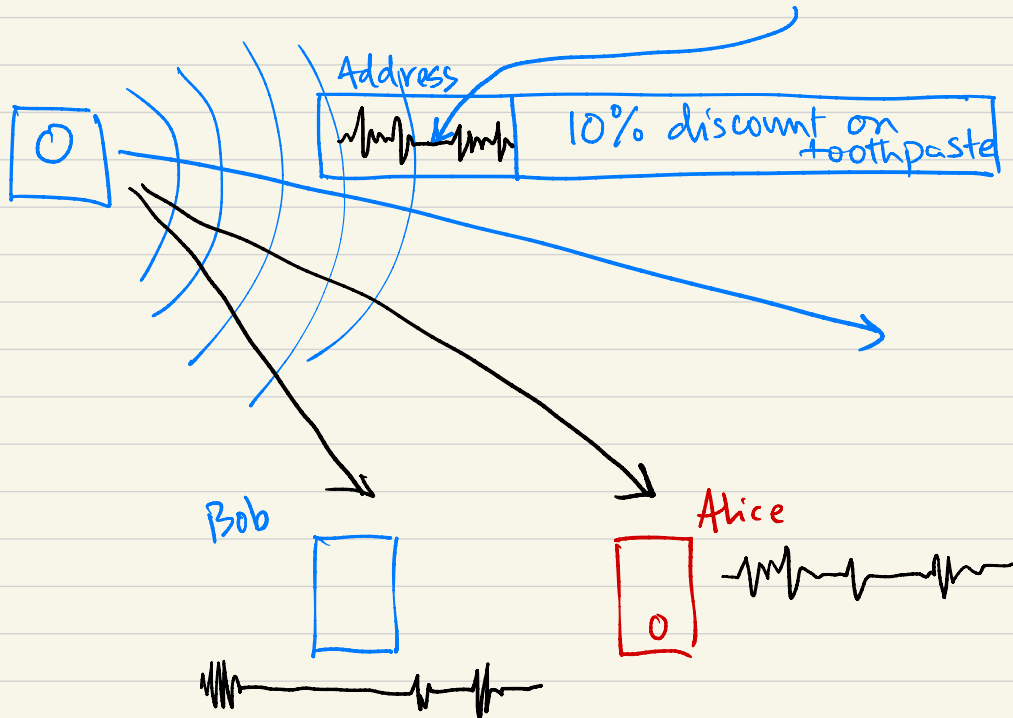 Address
10% discount on
toothpaste
Bob
Alice